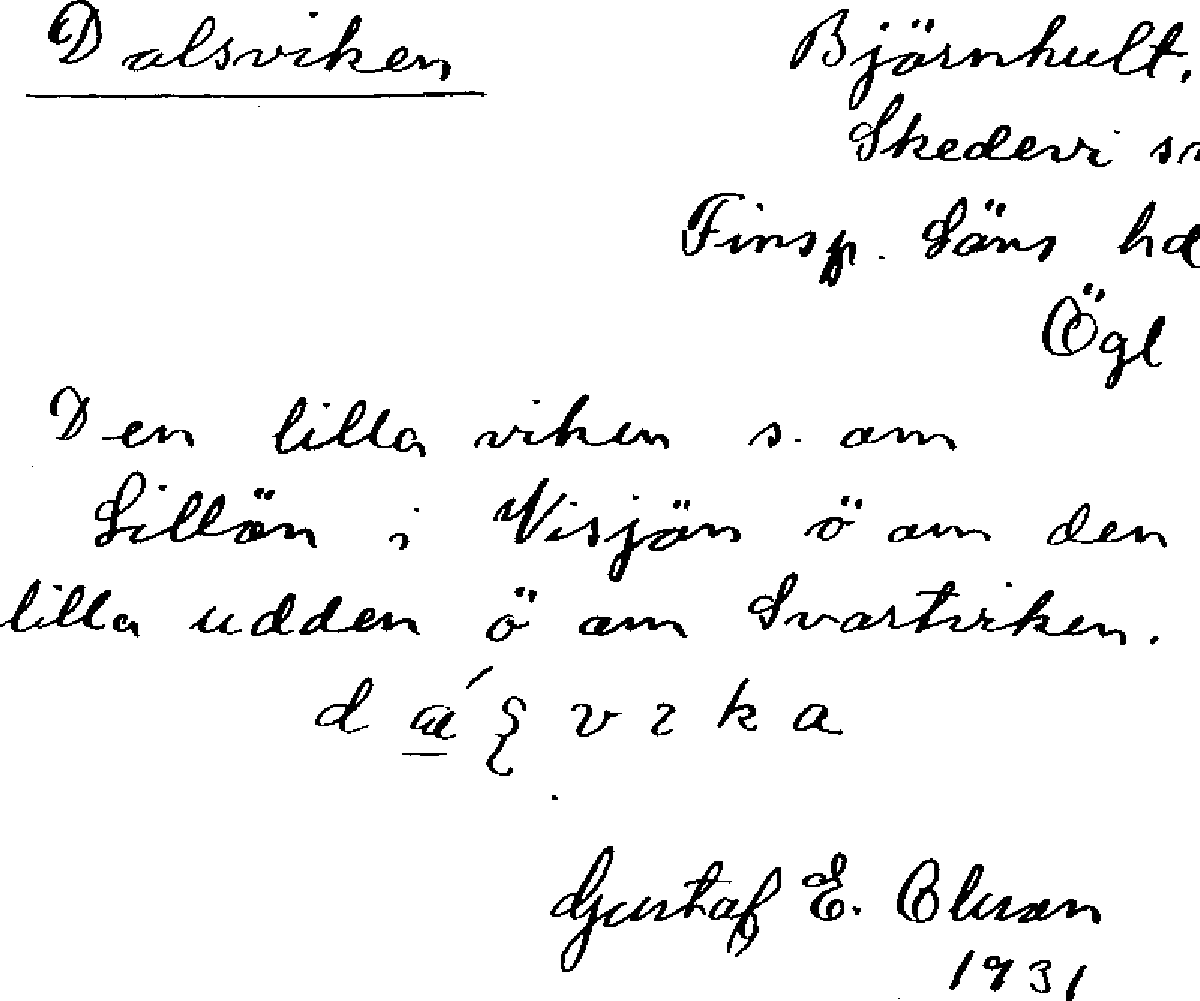 Dalsviken
Björnhult,
Skedevi sn
Finsp. Läns hd
Ögl
Den lilla viken s. om
Lillön i Visjön ö om den
lilla udden ö om Svartviken.
Gustaf E. Olsson
1931